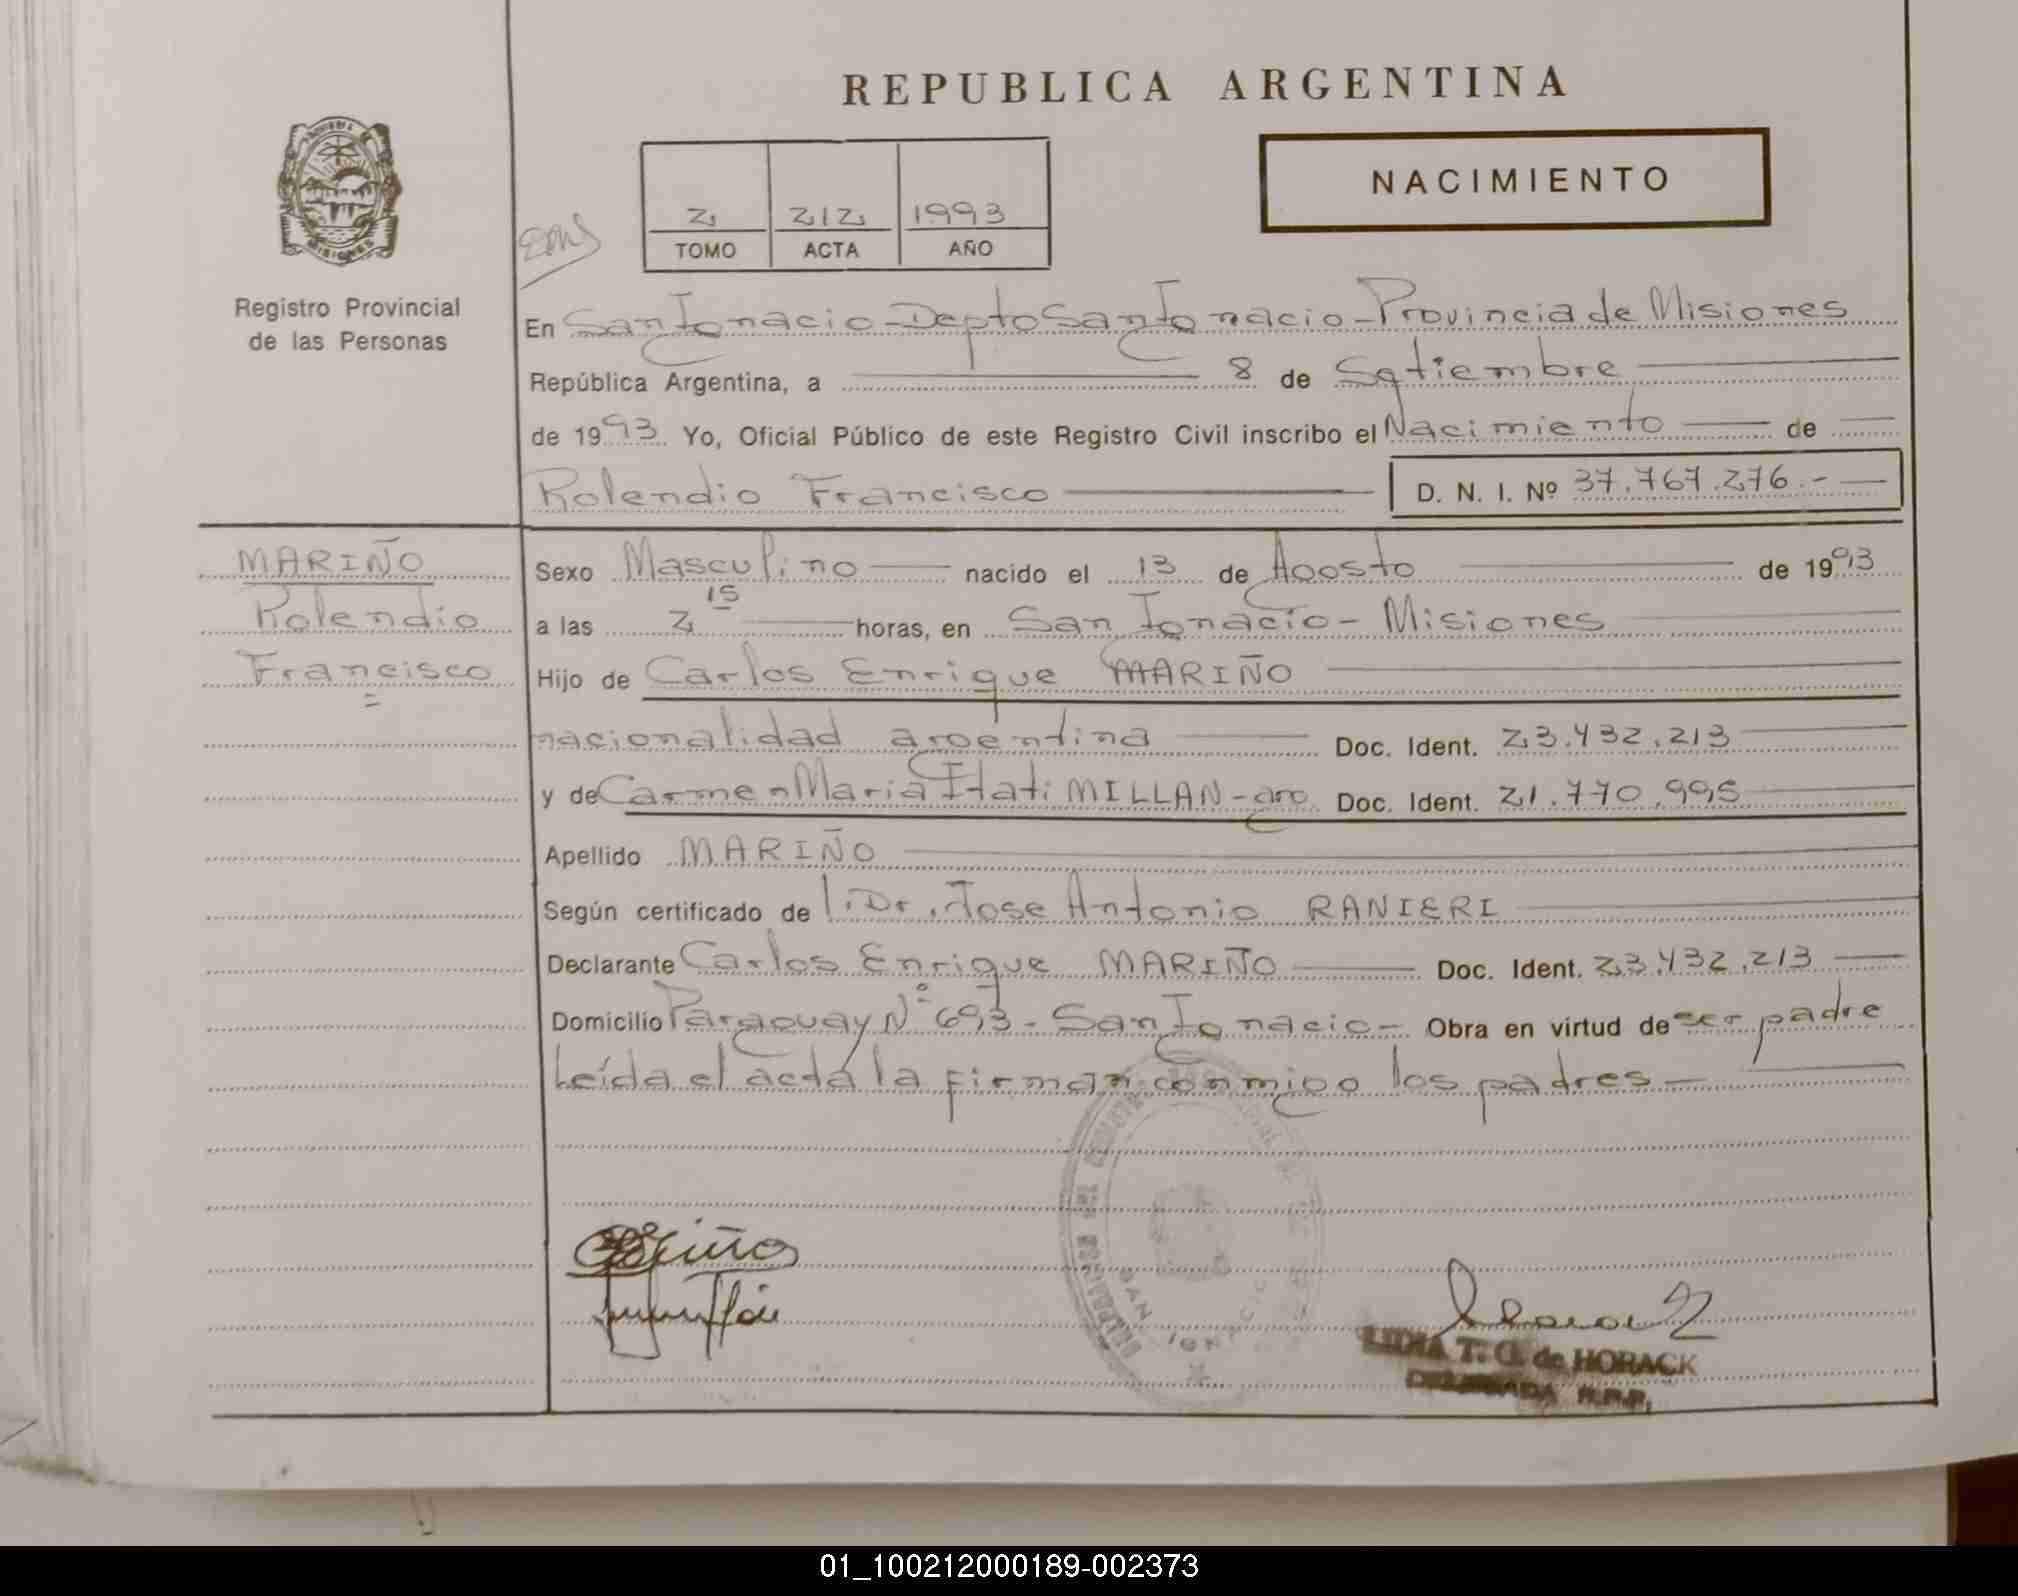 REPUBLICA ARGENTINA
NACIMIENTO
2 212 1993
TOMO ACTA AÑO
Registro Provincial
de las Personas
En San Ignacio - Depto San Ignacio - Provincia de Misiones
República Argentina, a 8 de Setiembre
de 1993 Yo, Oficial Público de este Registro Civil inscribo el Nacimiento de
Rolendio Francisco D. N. I. Nº 37.767.276.-
MARIÑO
Rolendio
Francisco
Sexo Masculino nacido el 13 de Agosto de 1993
a las 2 15 horas, en San Ignacio - Misiones
Hijo de Carlos Enrique MARIÑO
nacionalidad argentina Doc. Ident. 23.432.213
y de Carmen Maria Itati MILLAN - arg Doc. Ident. 21.770.995
Apellido MARIÑO
Según certificado de l. Dr. Jose Antonio RANIERI
Declarante Carlos Enrique MARIÑO Doc. Ident. 23.432.213
Domicilio Paraguay Nº 693 - San Ignacio - Obra en virtud de ser padre
Leída el acta la firman conmigo los padres -
SAN IGNACIO
LIDIA T. G. de HORACK
DELEGADA R.P.P.
01_100212000189-002373